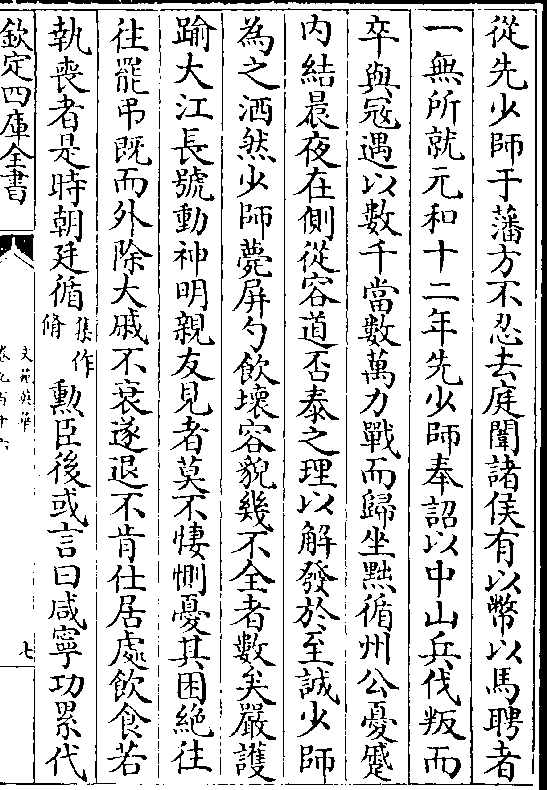 從先少師于藩方不忍去庭闈諸侯有以幣以馬聘者
一無所就元和十二年先少師奉詔以中山兵伐叛而
卒與冦遇以數千當數萬力戰而歸坐黜循州公憂蹙
内結晨夜在側從容道否泰之理以解發於至誠少師
為之洒然少師薨屏勺飲壞容貌幾不全者數矣嚴護
踰大江長號動神明親友見者莫不悽惻憂其困絶往
往罷弔既而外除大戚不衰遂退不肯仕居處飲食若
執喪者是時朝廷循集作脩勲臣後或言曰咸寧功累代
欽定四庫全書
文苑英華
卷九百十六
七